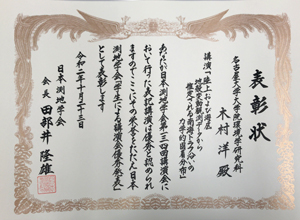 表彰状
名古屋大学大学院環境学研究科
木村 洋 殿
講演「陸上および海底
地殻変動観測データから
推定される南海トラフ沿いの
力学的固着分布」
あなたが日本測地学会第一三四回講演会に
おいて行った表記講演は優秀と認められ
ますのでここにその栄誉をたたえ日本
測地学会「学生による講演会優秀発表」
として表彰します
令和二年十月二十三日
日本測地学会
会長 田部井 隆雄